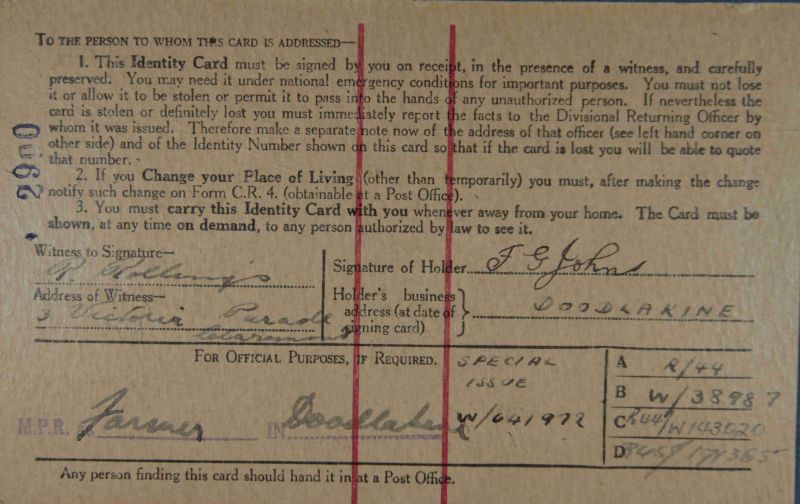 TO THE PERSON TO WHOM THIS CARD IS ADDRESSED—
1. This Identity Card must be signed by you on receipt, in the presence of a witness, and carefully
preserved. You may need it under national emergency conditions for important purposes. You must not lose
it or allow it to be stolen or permit it to pass into the hands of any unauthorized person. If nevertheless the
card is stolen or definitely lost you must immediately report the facts to the Divisional Returning Officer by
whom it was issued. Therefore make a separate note now of the address of that officer (see left hand corner on
other side) and of the Identity Number shown on this card so that if the card is lost you will be able to quote
that number.
2. If you Change your Place of Living (other than temporarily) you must, after making the change
notify such change on Form C.R. 4. (obtainable at a Post Office).
3. You must carry this Identity Card with you whenever away from your home. The Card must be
shown, at any time on demand, to any person authorized by law to see it.
Witness to Signature—
R. Rollings
Address of Witness—
3 Victoria Parade
Claremont
Signature of Holder F G Johns
Holder's business
address (at date of
signing card)
DOODLAKINE
FOR OFFICIAL PURPOSES, IF REQUIRED.
SPECIAL
ISSUE
W/641972
M.P.R. Farmer IN Doodlakine
A R/44
B W/38987
C R44/W143020
D /171365
Any person finding this card should hand it in at a Post Office.